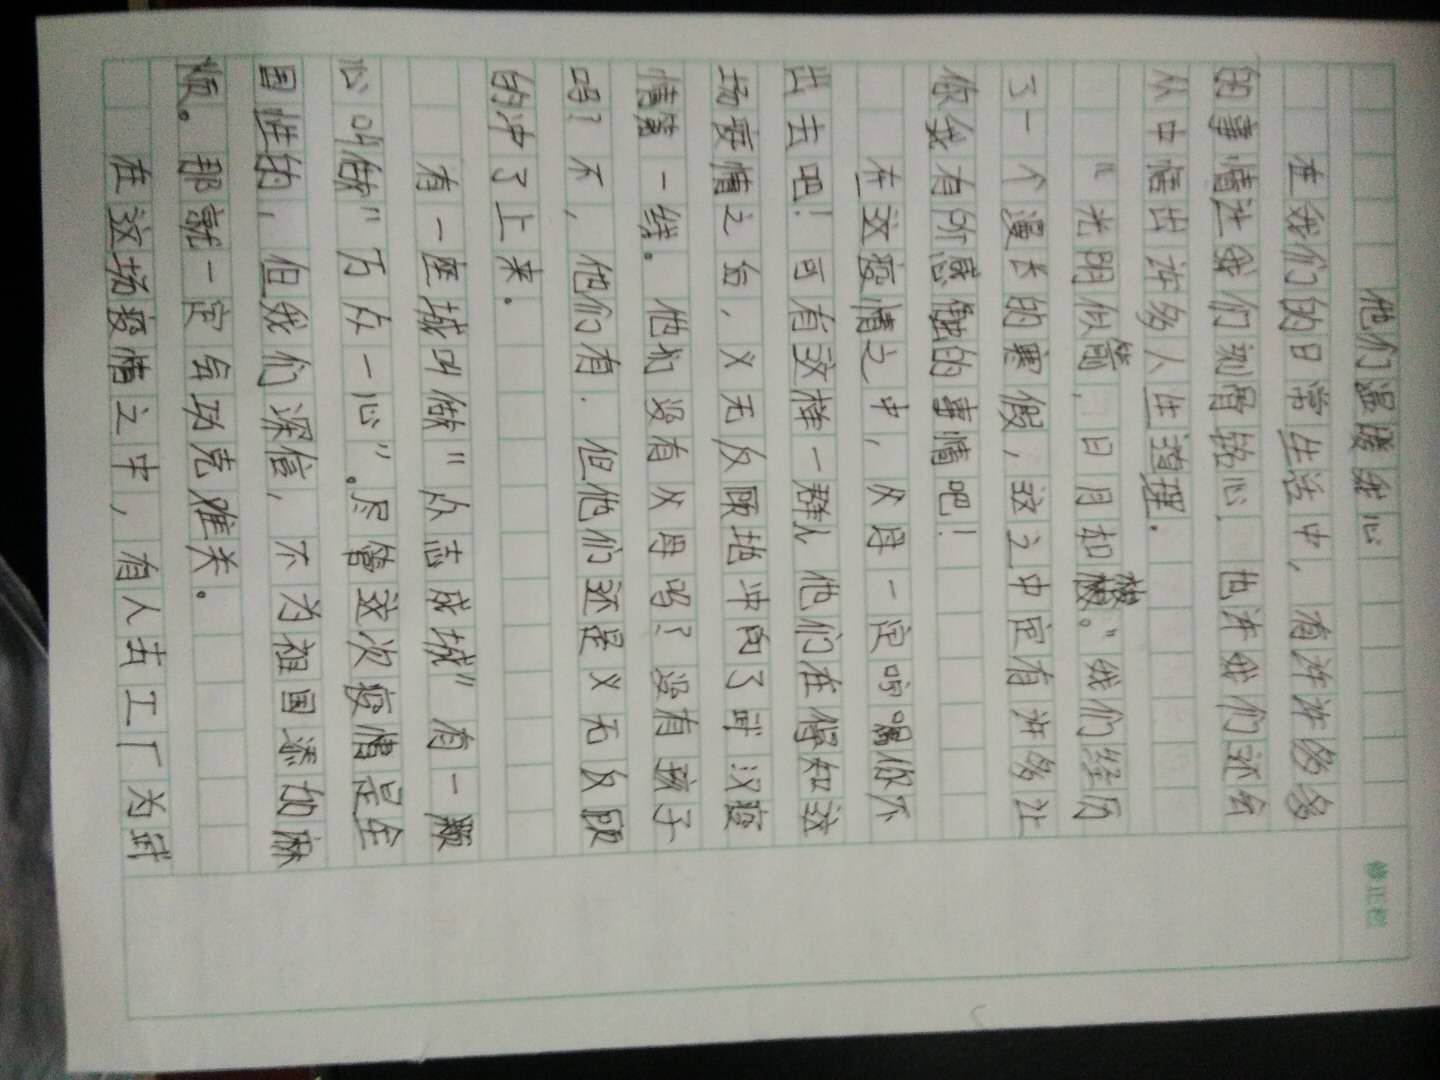 他们温暖我心
在我们的日常生活中，有许许多多
的事情让我们刻骨铭心，也让我们还会
从中悟出许多人生道理。
“光明似箭，日月如梭。”我们经历
了一个漫长的寒假，这之中定有许多让
你我有所感触的事情吧！
在这疫情之中，父母一定叮嘱你不
出去吧！可有这样一群人他们在得知这
场疫情之后，义无反顾地冲向了武汉疫
情第一线。他们没有父母吗？没有孩子
吗？不，他们有．但他们还是义无反顾
的冲了上来．
有一座城叫做“众志成城”有一颗
心叫做“万众一心”。尽管这次疫情是全
国性的，但我们深信，不为祖国添加麻
烦。那就一定会攻克难关．
在这场疫情之中，有人去工厂为武
修正栏